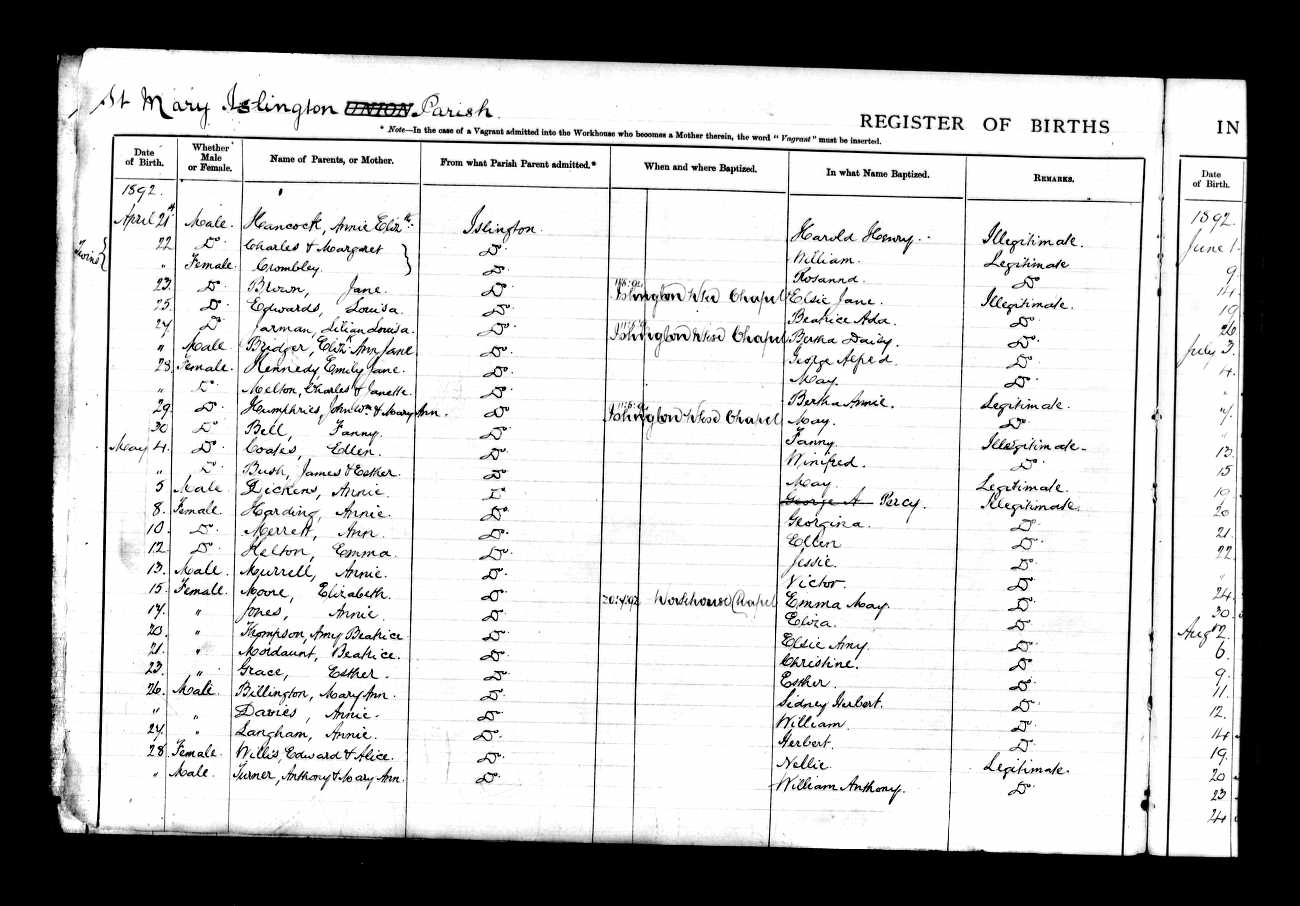 St Mary Islington UNION Parish.
* Note—In the case of a Vagrant admitted into the Workhouse who becomes a Mother therein, the word "Vagrant" must be inserted.
REGISTER OF BIRTHS
IN
Date of Birth. Whether Male or Female. Name of Parents, or Mother. From what Parish Parent admitted.* When and where Baptized. In what Name Baptized. Remarks. Date of Birth.
1892. 1892.
April 21st Male. Hancock, Annie Elizth. Islington. Harold Henry. Illegitimate. June 1
Twins { 22 Do. Charles & Margaret } Do. William. Legitimate
" Female. Crombley. Do. Rosanna. Do. 9
23. Do. Brown, Jane. Do. Islington Wse Chapel Elsie Jane. Illegitimate. 14
25. Do. Edwards, Louisa. Do. Beatrice Ada. Do. 19
27 Do. Jarman, Lilian Louisa. Do. Islington Wse Chapel Bertha Daisy. Do. 26
" Male. Bridger, Elizth Ann Jane. Do. George Alfred. Do. July 3.
28. Female. Kennedy, Emily Jane. Do. May. Do. 4.
" Do. Melton, Charles & Janette. Do. Bertha Annie. Legitimate. "
29. Do. Humphries, John Wm & Mary Ann. Do. Islington Wse Chapel May. Do. 7.
30 Do. Bell, Fanny. Do. Fanny. Illegitimate. "
May 4. Do. Coates, Ellen. Do. Winifred. Do. 13.
" Do. Bush, James & Esther. Do. May. Legitimate. 15
5 Male. Dickens, Annie. Do. George A Percy. Illegitimate. 19
8. Female. Harding, Annie. Do. Georgina. Do. 20
10. Do. Merrett, Ann. Do. Ellen Do. 21.
12. Do. Helton, Emma. Do. Jessie. Do. 22.
13. Male. Murrell, Annie. Do. Victor. Do. "
15. Female. Moore, Elizabeth. Do. Workhouse Chapel Emma May. Do. 24.
17. " Jones, Annie. Do. Eliza. Do. 30.
20. " Thompson, Amy Beatrice Do. Elsie Amy. Do. Aug 2.
21. " Mordaunt, Beatrice. Do. Christine. Do. 6.
23. " Grace, Esther. Do. Esther. Do. 9.
26. Male Billington, Mary Ann. Do. Sidney Herbert. Do. 11.
" " Davies, Annie. Do. William. Do. 12.
27. " Langham, Annie. Do. Herbert. Do. 14
28 Female. Willis, Edward & Alice. Do. Nellie. Legitimate. 19.
" Male. Turner, Anthony & Mary Ann. Do. William Anthony. Do. 20
23
24